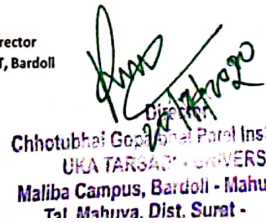 rector
T, Bardoli
Director
Chhotubhai Gopalbhai Patel Ins
UKA TARSADIA UNIVERS
Maliba Campus, Bardoli - Mahu
Tal. Mahuva, Dist. Surat -